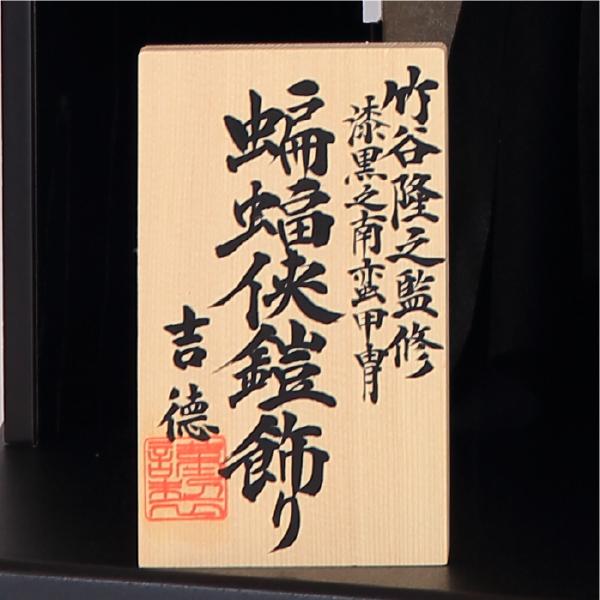 竹谷隆之監修
漆黒之南蛮甲冑
蝙蝠侠鎧飾り
吉德
謹製